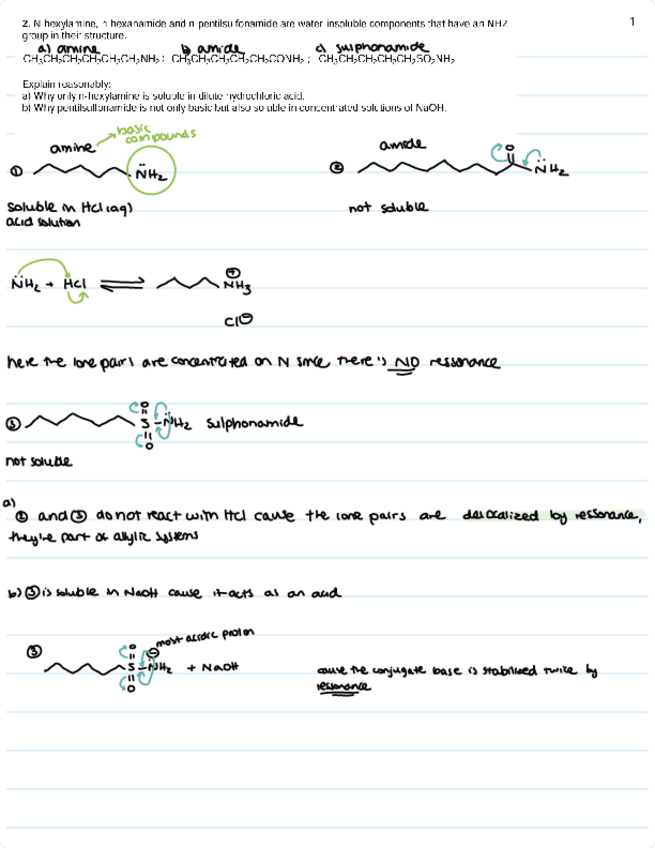 1
2. N hexylamine, n hexanamide and n pentilsulfonamide are water insoluble components that have an NH2
group in their structure.
a) amine b) amide c) sulphonamide
CH₃CH₂CH₂CH₂CH₂CH₂NH₂ ; CH₃CH₂CH₂CH₂CH₂CONH₂ ; CH₃CH₂CH₂CH₂CH₂SO₂NH₂
Explain reasonably:
a) Why only n-hexylamine is soluble in dilute hydrochloric acid.
b) Why pentilsulfonamide is not only basic but also soluble in concentrated solutions of NaOH.
basic
compounds
amine amide
① N̈H₂ ② O N̈H₂
soluble in HCl (aq) not soluble
acid solution
N̈H₂ + HCl ⇌ NH₃ ⊕
Cl⊖
here the lone pairs are concentrated on N since there's NO ressonance
③ O S O N̈H₂ sulphonamide
not soluble
a)
② and ③ do not react with HCl cause the lone pairs are delocalized by ressonance,
they're part of allylic systems
b) ③ is soluble in NaOH cause it acts as an acid
most acidic proton
③ O S O N̈H₂ + NaOH
cause the conjugate base is stabilised twice by
ressonance